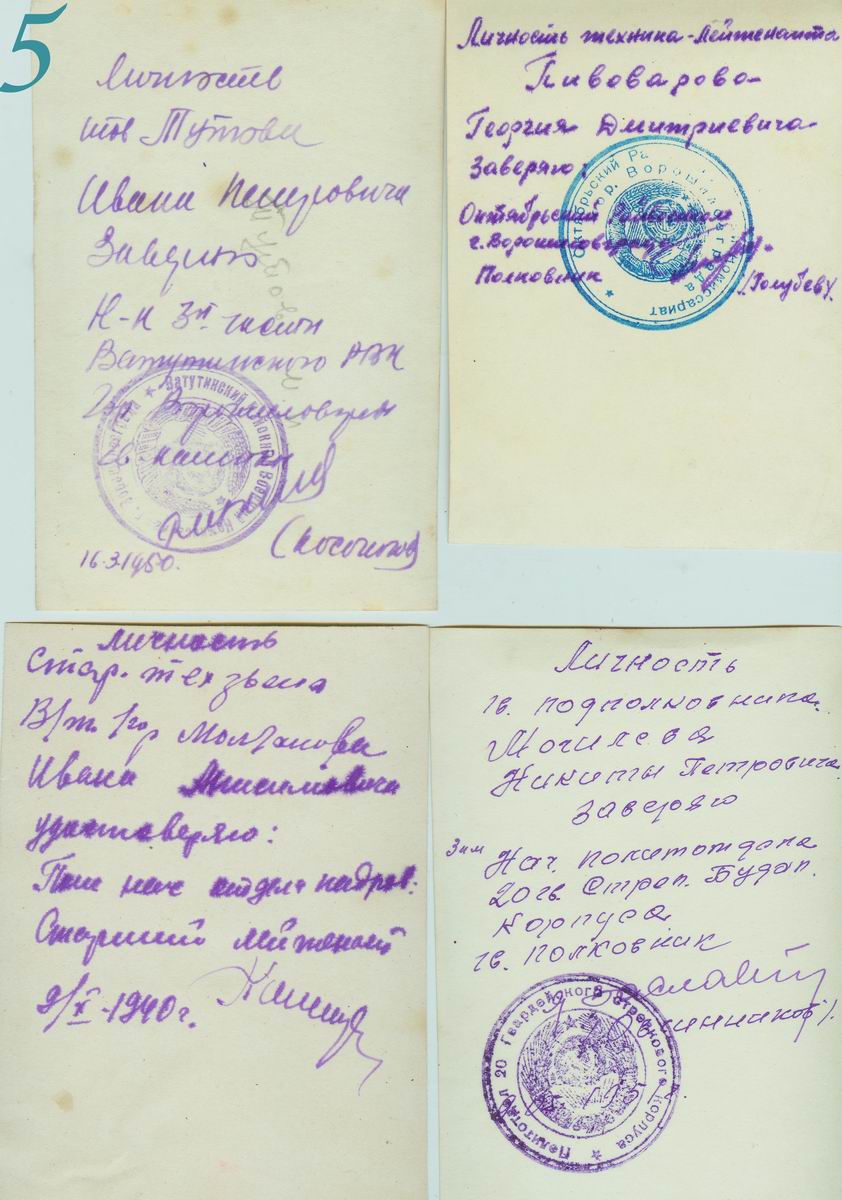 5
Личность
тов Тутова
Ивана Петровича
Заверяю
Н-к 3й части
Ватутинского РВК
гор Ворошиловград
гв капитан
16.3.1950.
Личность техника-лейтенанта
Пивоварово
Георгия Дмитриевича
Заверяю:
Октябрьский Райвоенком
г. Ворошиловграда
Полковник /Голубев/
Октябрьский гор. Ворошиловграда
личность
Стар. тех звена
В/т. 1го Молчанова
Ивана
удостоверяю:
Пом нач отдела кадров:
Старший лейтенант
9/X-1940г.
Личность
гв. подполковника
Могилева
Никиты Петровича
заверяю
Зам Нач. политотдела
20 гв. Стрел. Будап.
Корпуса
гв. полковник
Политотдел 20 Гвардейского Стрелкового Корпуса